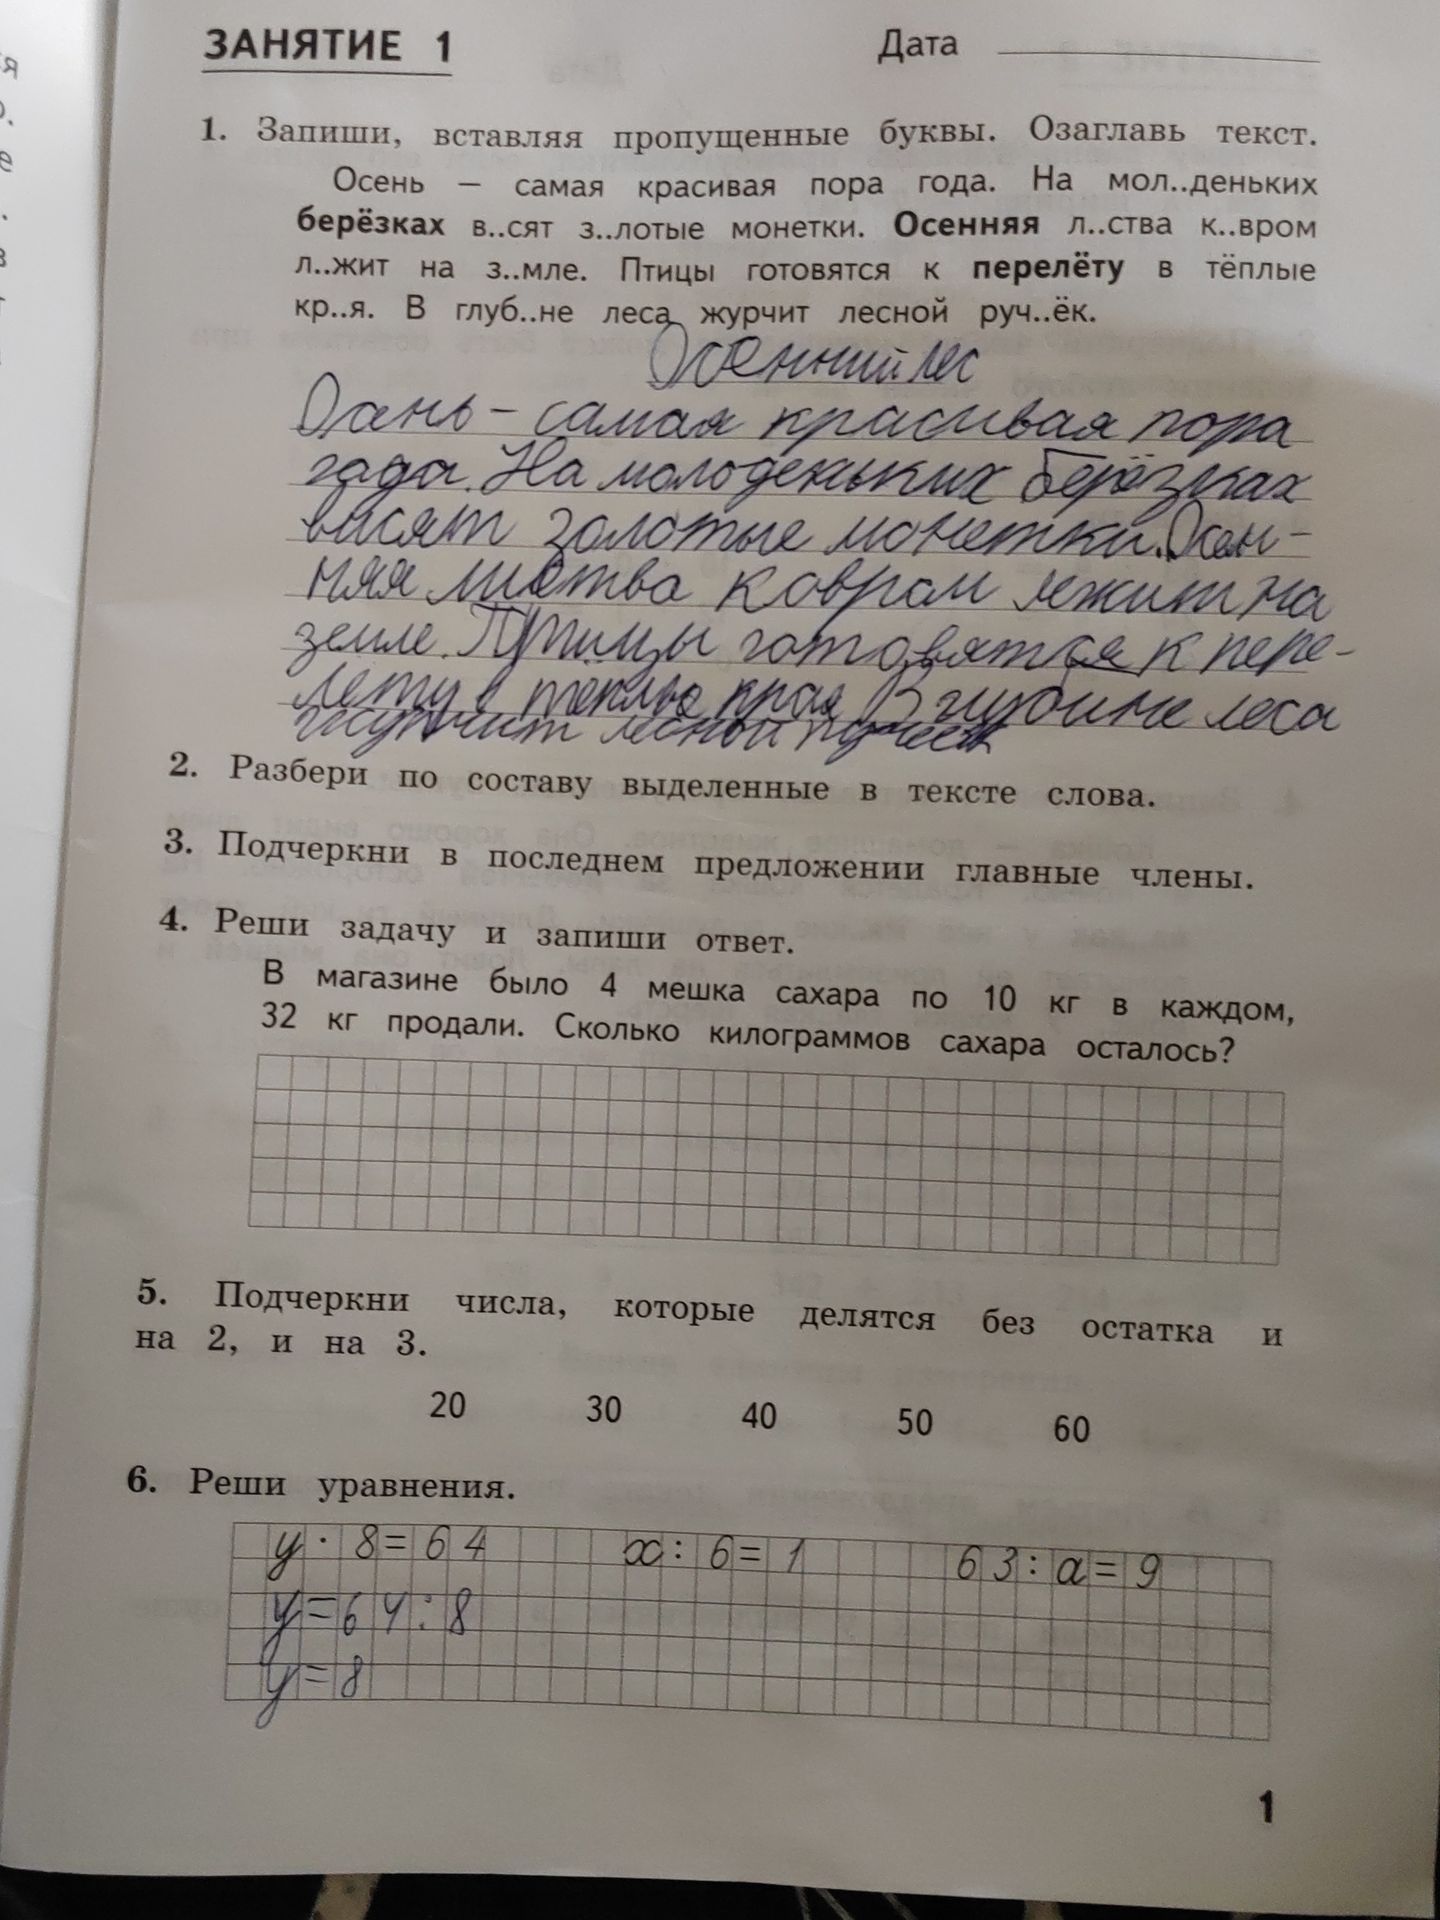 ЗАНЯТИЕ 1 Дата
1. Запиши, вставляя пропущенные буквы. Озаглавь текст.
Осень — самая красивая пора года. На мол..деньких
берёзках в..сят з..лотые монетки. Осенняя л..ства к..вром
л..жит на з..мле. Птицы готовятся к перелёту в тёплые
кр..я. В глуб..не леса журчит лесной руч..ёк.
Осенний лес
Осень – самая красивая пора
года. На молоденьких берёзках
висят золотые монетки. Осен-
няя листва ковром лежит на
земле. Птицы готовятся к пере-
лету в теплые края В глубине леса
журчит лесной ручеек
2. Разбери по составу выделенные в тексте слова.
3. Подчеркни в последнем предложении главные члены.
4. Реши задачу и запиши ответ.
В магазине было 4 мешка сахара по 10 кг в каждом,
32 кг продали. Сколько килограммов сахара осталось?
5. Подчеркни числа, которые делятся без остатка и
на 2, и на 3.
20 30 40 50 60
6. Реши уравнения.
y · 8 = 64 x : 6 = 1 63 : a = 9
y = 64 : 8
y = 8
1